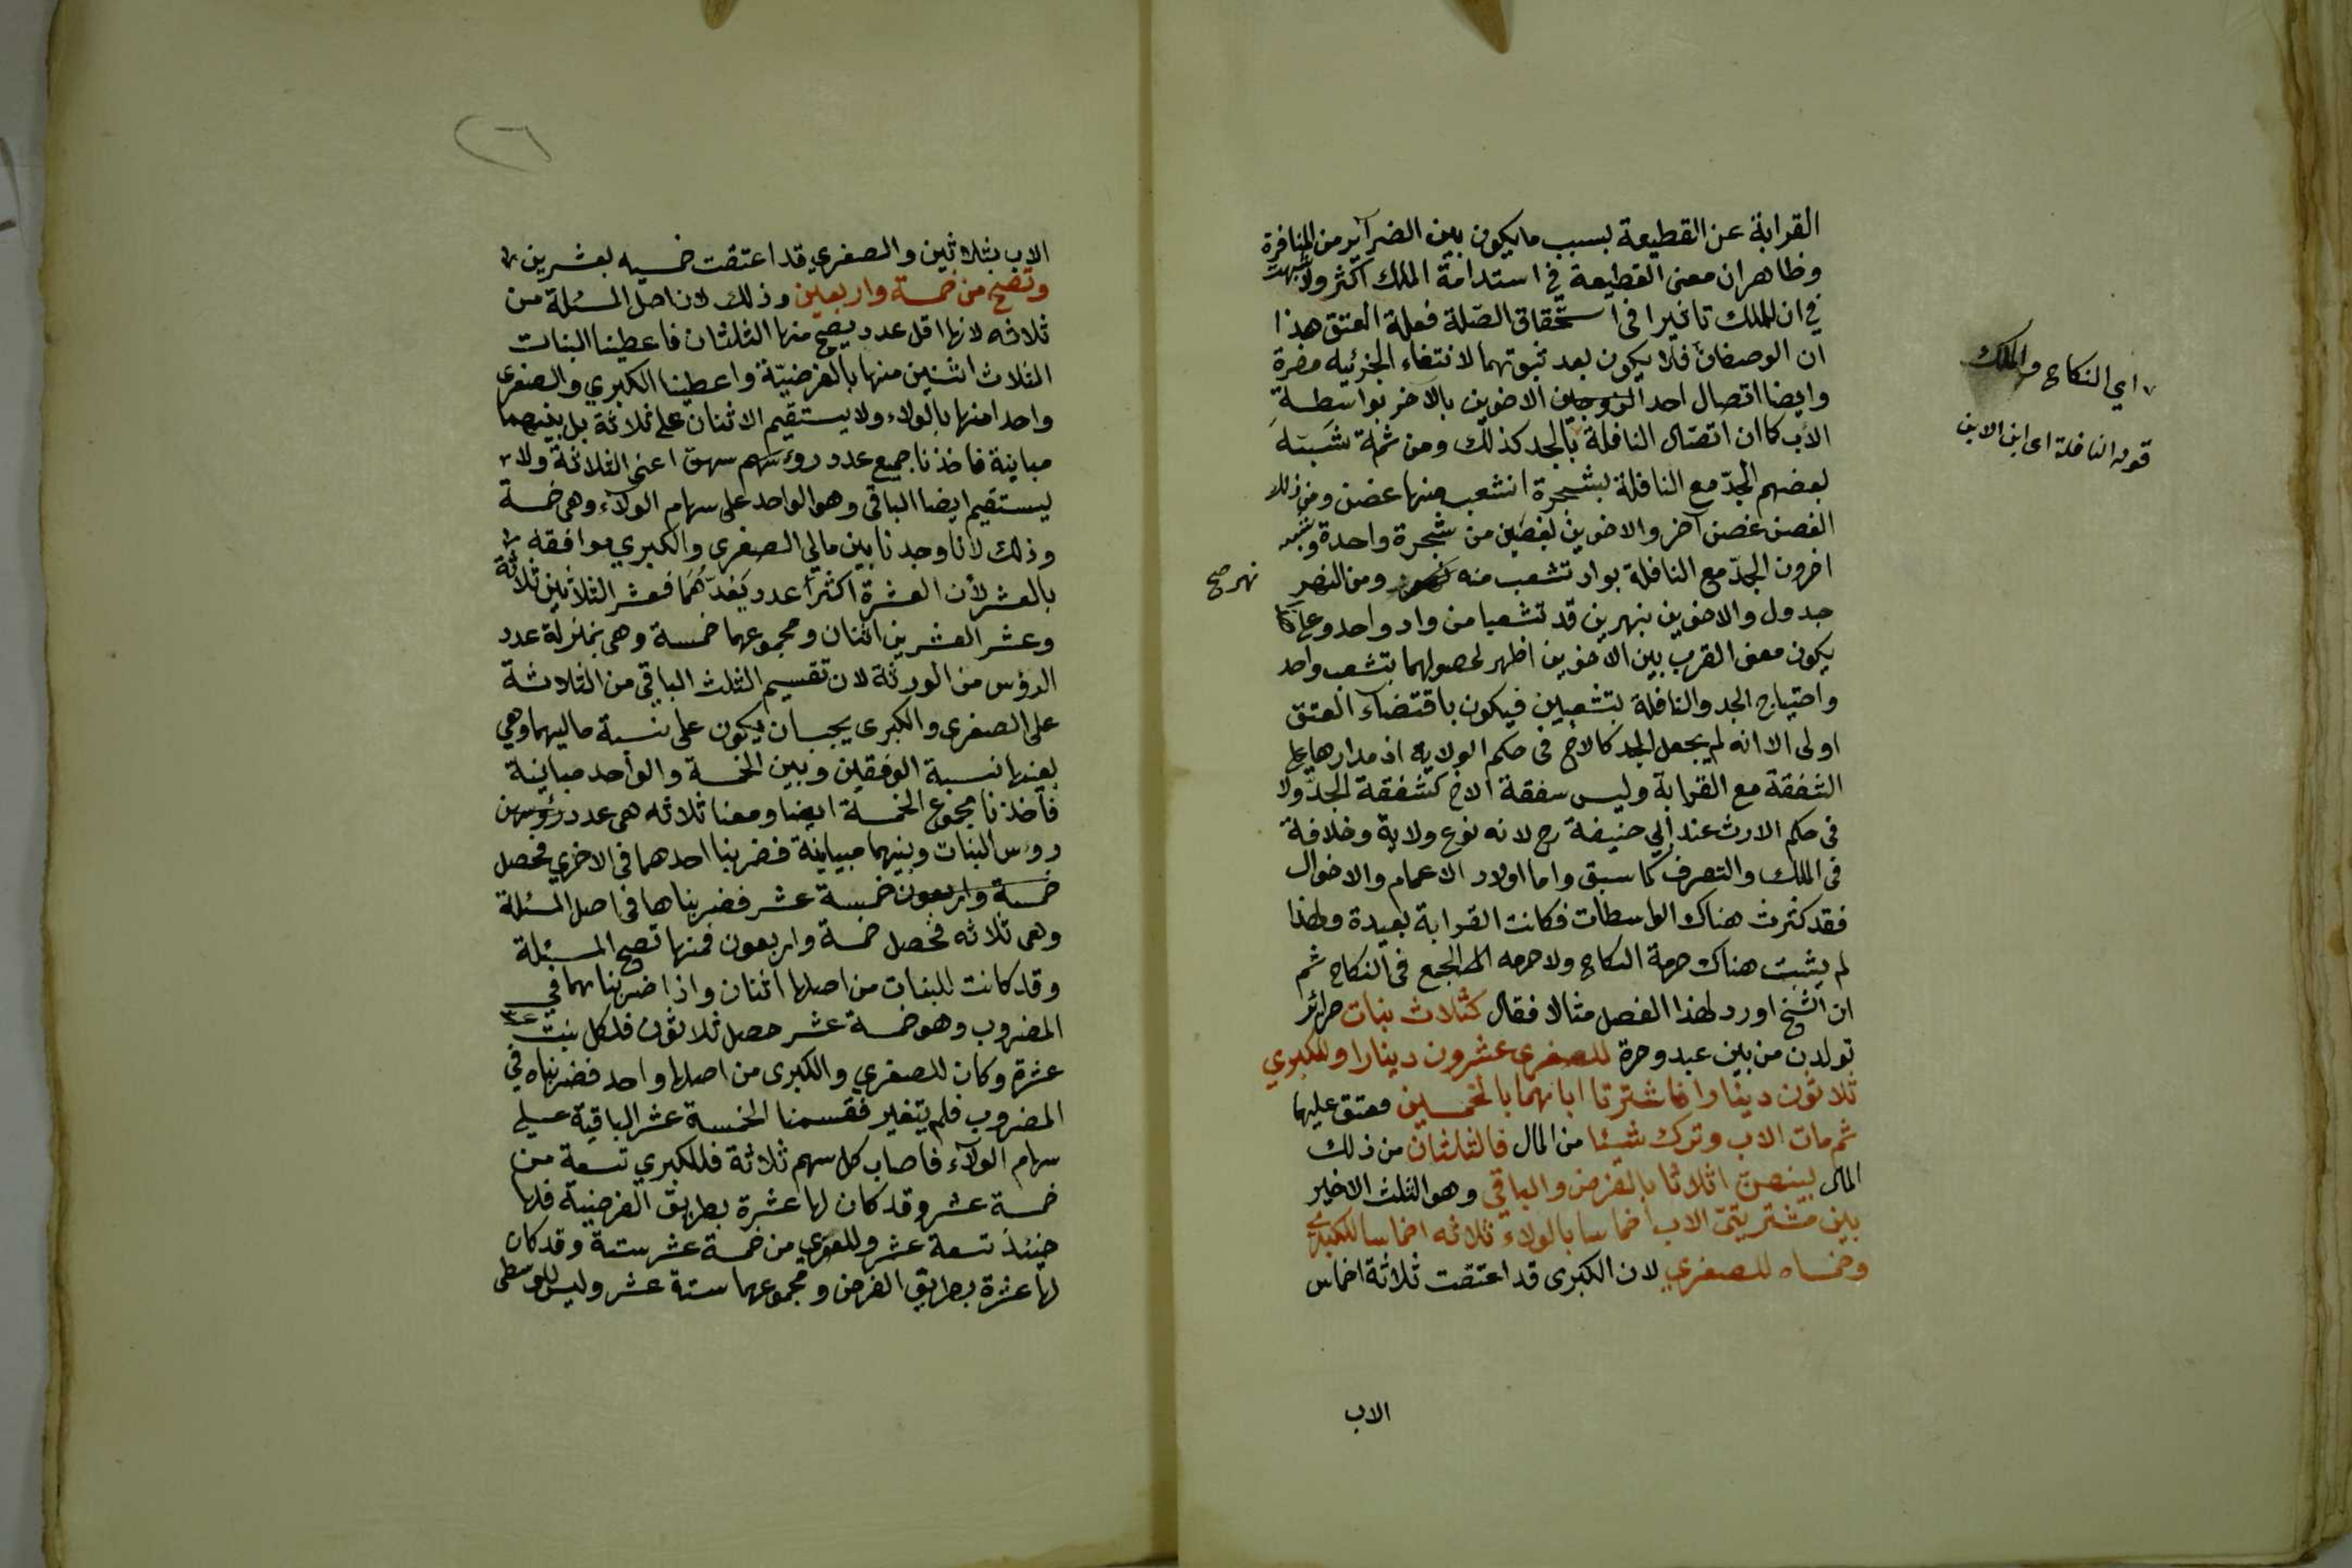 القرابة عن القطيعة بسبب ما يكون بين الضرآير من المنافرة
وظاهر ان معنى القطيعة في استدامة الملك اكثر ولا شبهة
في ان للملك تاثيرا فى استحقاق الصلة فعلة العتق هذا
ان الوصفان فلا يكون بعد ثبوتهما لانتفاء الجزئيه مضرة
وايضا اتصال احد الاخوين بالاخر بواسطة
الأب كما ان اتصال النافلة بالجد كذلك ومن ثمة شبّه
بعضهم الجدّ مع النافلة بشجرة انشعب منها غصن ومن ذلك
الغصن غصن آخر والاخوين بغصنين من شجرة واحدة وشبه
اخرون الجدّ مع النافلة بواد تشعب منه ومن النهر
نهر صح
جدول والاخوين بنهرين قد تشعبا من واد واحد وعلى
يكون معنى القرب بين الاخوين اظهر لحصولهما بتشعب واحد
واحتياج الجد والنافلة بتشعبين فيكون باقتضاء العتق
اولى الا انه لم يجعل الجد كالاخ فى حكم الولاية اذ مدارها على
الشفقة مع القرابة وليس شفقة الاخ كشفقة الجدّ ولا
فى حكم الارث عند أبي حنيفة رح لانه نوع ولاية وخلافة
فى الملك والتصرف كما سبق واما اولاد الاعمام والاخوال
فقد كثرت هناك الواسطات فكانت القرابة بعيدة ولهذا
لم يثبت هناك حرمة النكاح ولا حرمه الجمع فى النكاح ثم
ان الشيخ اورد لهذا الفصل مثالا فقال كثلاث بنات حرائر
تولدن من بين عبد وحرة للصغرى عشرون دينارا وللكبري
ثلاثون دينارا فاشترتا اباهما بالخمسين فعتق عليهما
ثم مات الاب وترك شيئا من المال فالثلثان من ذلك
المال بينهن اثلاثا بالفرض والباقي وهو الثلث الاخير
بين مشتريتي الاب اخماسا بالولاء ثلاثه اخماسا للكبرى
وخمساه للصغري لان الكبرى قد اعتقت ثلاثة اخماس
الاب
اي النكاح والملك
قوله النافلة اى ابن الابن
٢٦
الاب بثلاثين والصغري قد اعتقت خمسيه بعشرين
وتصح من خمسة واربعين وذلك لان اصل المسئلة من
ثلاثه لانها اقل عدد يصح منها الثلثان فاعطينا البنات
الثلاث اثنين منها بالفرضيّة واعطينا الكبري والصغرى
واحدا منها بالولاء ولا يستقيم الاثنان على ثلاثة بل بينهما
مباينة فاخذنا جميع عدد رؤسهم اعنى الثلاثة ولا
يستقيم ايضا الباقى وهو الواحد على سهام الولاء وهى خمسة
وذلك لانا وجدنا بين مالي الصغرى والكبرى موافقة
بالعشر لأن العشرة اكثر عدد يَعُدّهُمَا فعشر الثلاثين ثلاثة
وعشر العشرين اثنان ومجموعهما خمسة وهى بمنزلة عدد
الرؤس من الورثة لان تقسيم الثلث الباقي من الثلاثة
على الصغرى والكبرى يجب ان يكون على نسبة ماليهما وهي
بعينها نسبة الوفقين وبين الخمسة والواحد مباينة
فاخذنا مجموع الخمسة ايضا ومعنا ثلاثه هى عدد رؤسهن
رؤس البنات وبينهما مباينة فضربنا احدهما فى الاخري فحصل
خمسة واربعون خمسة عشر فضربناها فى اصل المسئلة
وهى ثلاثه فحصل خمسة واربعون فمنها تصح المسئلة
وقد كانت للبنات من اصلها اثنان واذا ضربناهما في
المضروب وهو خمسة عشر حصل ثلاثون فلكل بنت
عشرة وكان للصغري والكبرى من اصلها واحد فضربناه في
المضروب فلم يتغير فقسمنا الخمسة عشر الباقية على
سهام الولآء فاصاب كل سهم ثلاثة فللكبري تسعة من
خمسة عشر وقد كان لها عشرة بطريق الفرضية فلها
حينئذ تسعة عشر وللصغري من خمسة عشر ستة وقد كان
لها عشرة بطريق الفرض ومجموعهما ستة عشر وليس للوسطى